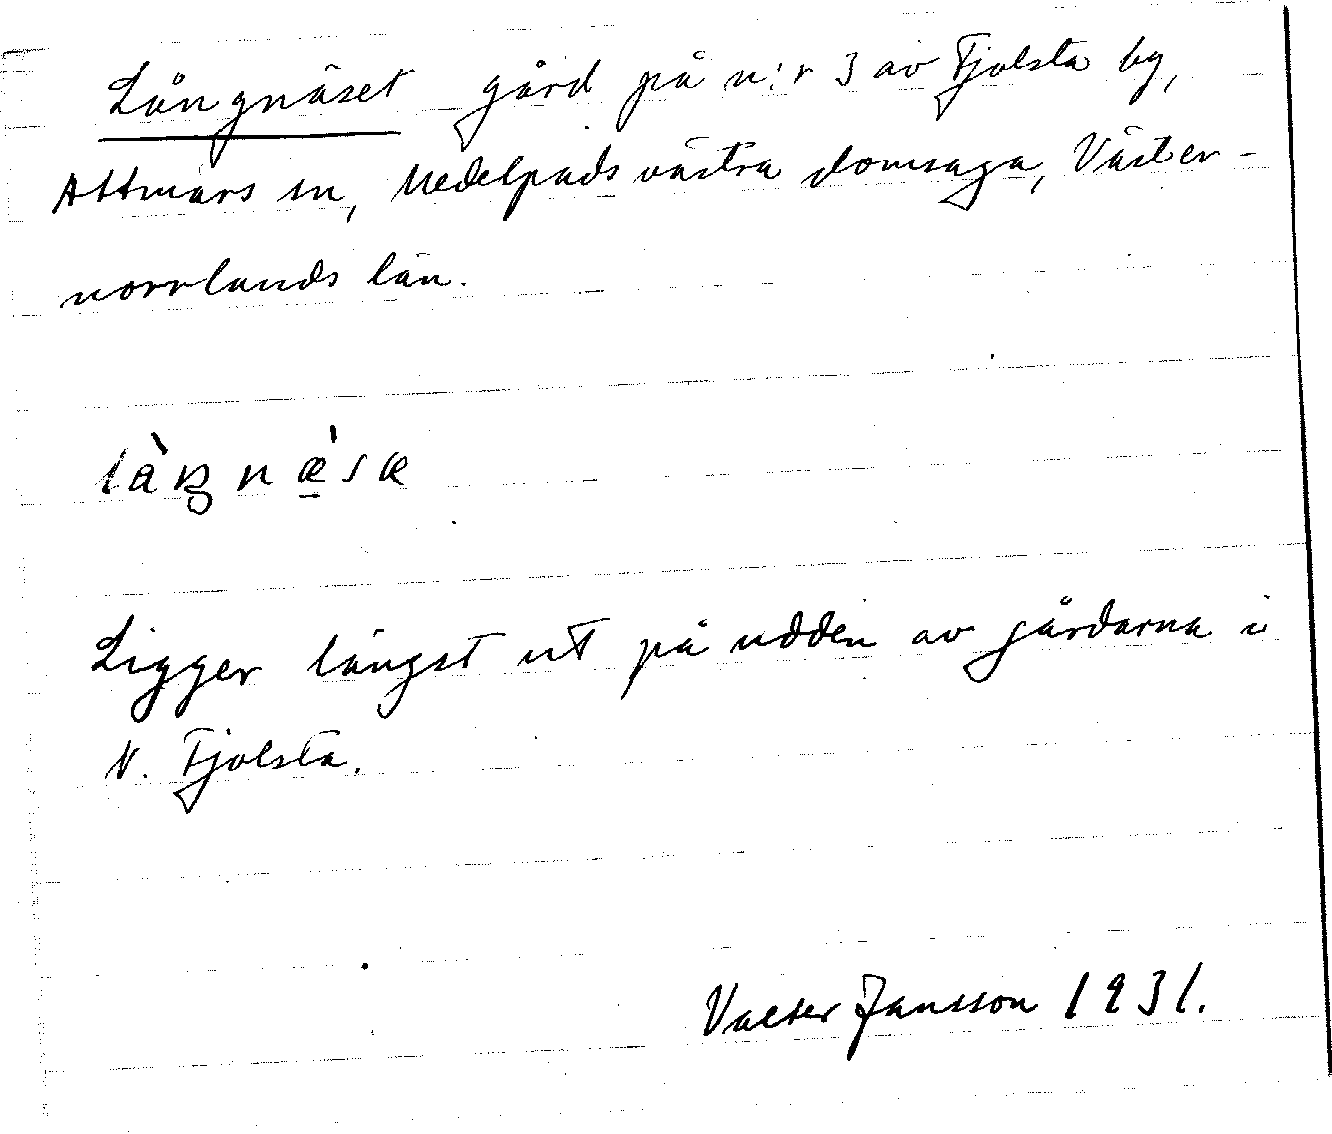 Långnäset gård på n:r 3 av Tjolsta by,
Attmars sn, Medelpads västra domsaga, Väster-
norrlands län.
làŋnæ̀sæ
Ligger längst ut på udden av gårdarna i
N. Tjolsta.
Valter Jansson 1931.